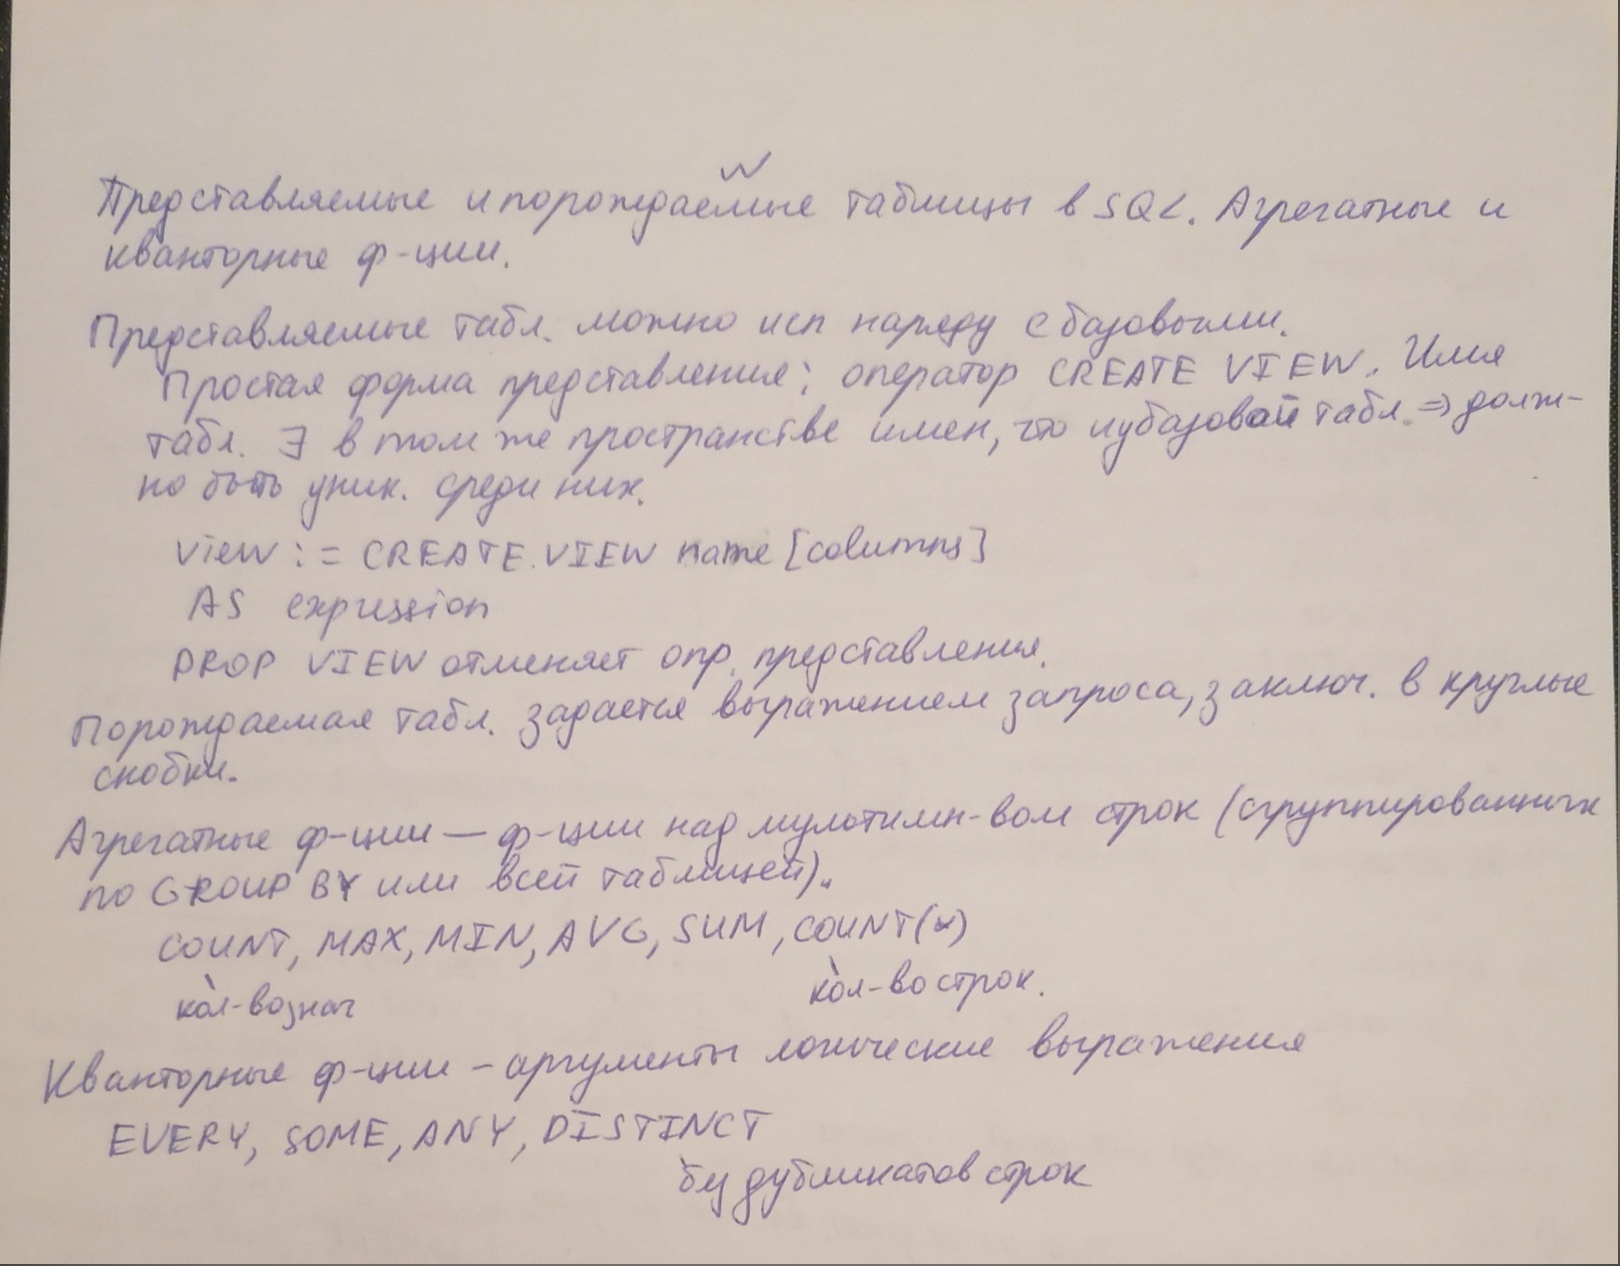 Представляемые и порождаемые таблицы в SQL. Агрегатные и
кванторные ф-ции.
Представляемые табл. можно исп наряду с базовыми.
Простая форма представления: оператор CREATE VIEW. Имя
табл. ∃ в том же пространстве имен, что и у базовой табл. ⇒ долж-
но быть уник. среди них.
view := CREATE VIEW name [columns]
AS expression
DROP VIEW отменяет опр. представления.
Порождаемая табл. задается выражением запроса, заключ. в круглые
скобки.
Агрегатные ф-ции — ф-ции над мультимн-вом строк (сгруппированных
по GROUP BY или всей таблицей).
COUNT, MAX, MIN, AVG, SUM, COUNT(*)
кол-во знач
кол-во строк.
Кванторные ф-ции - аргументы логические выражения
EVERY, SOME, ANY, DISTINCT
без дубликатов строк